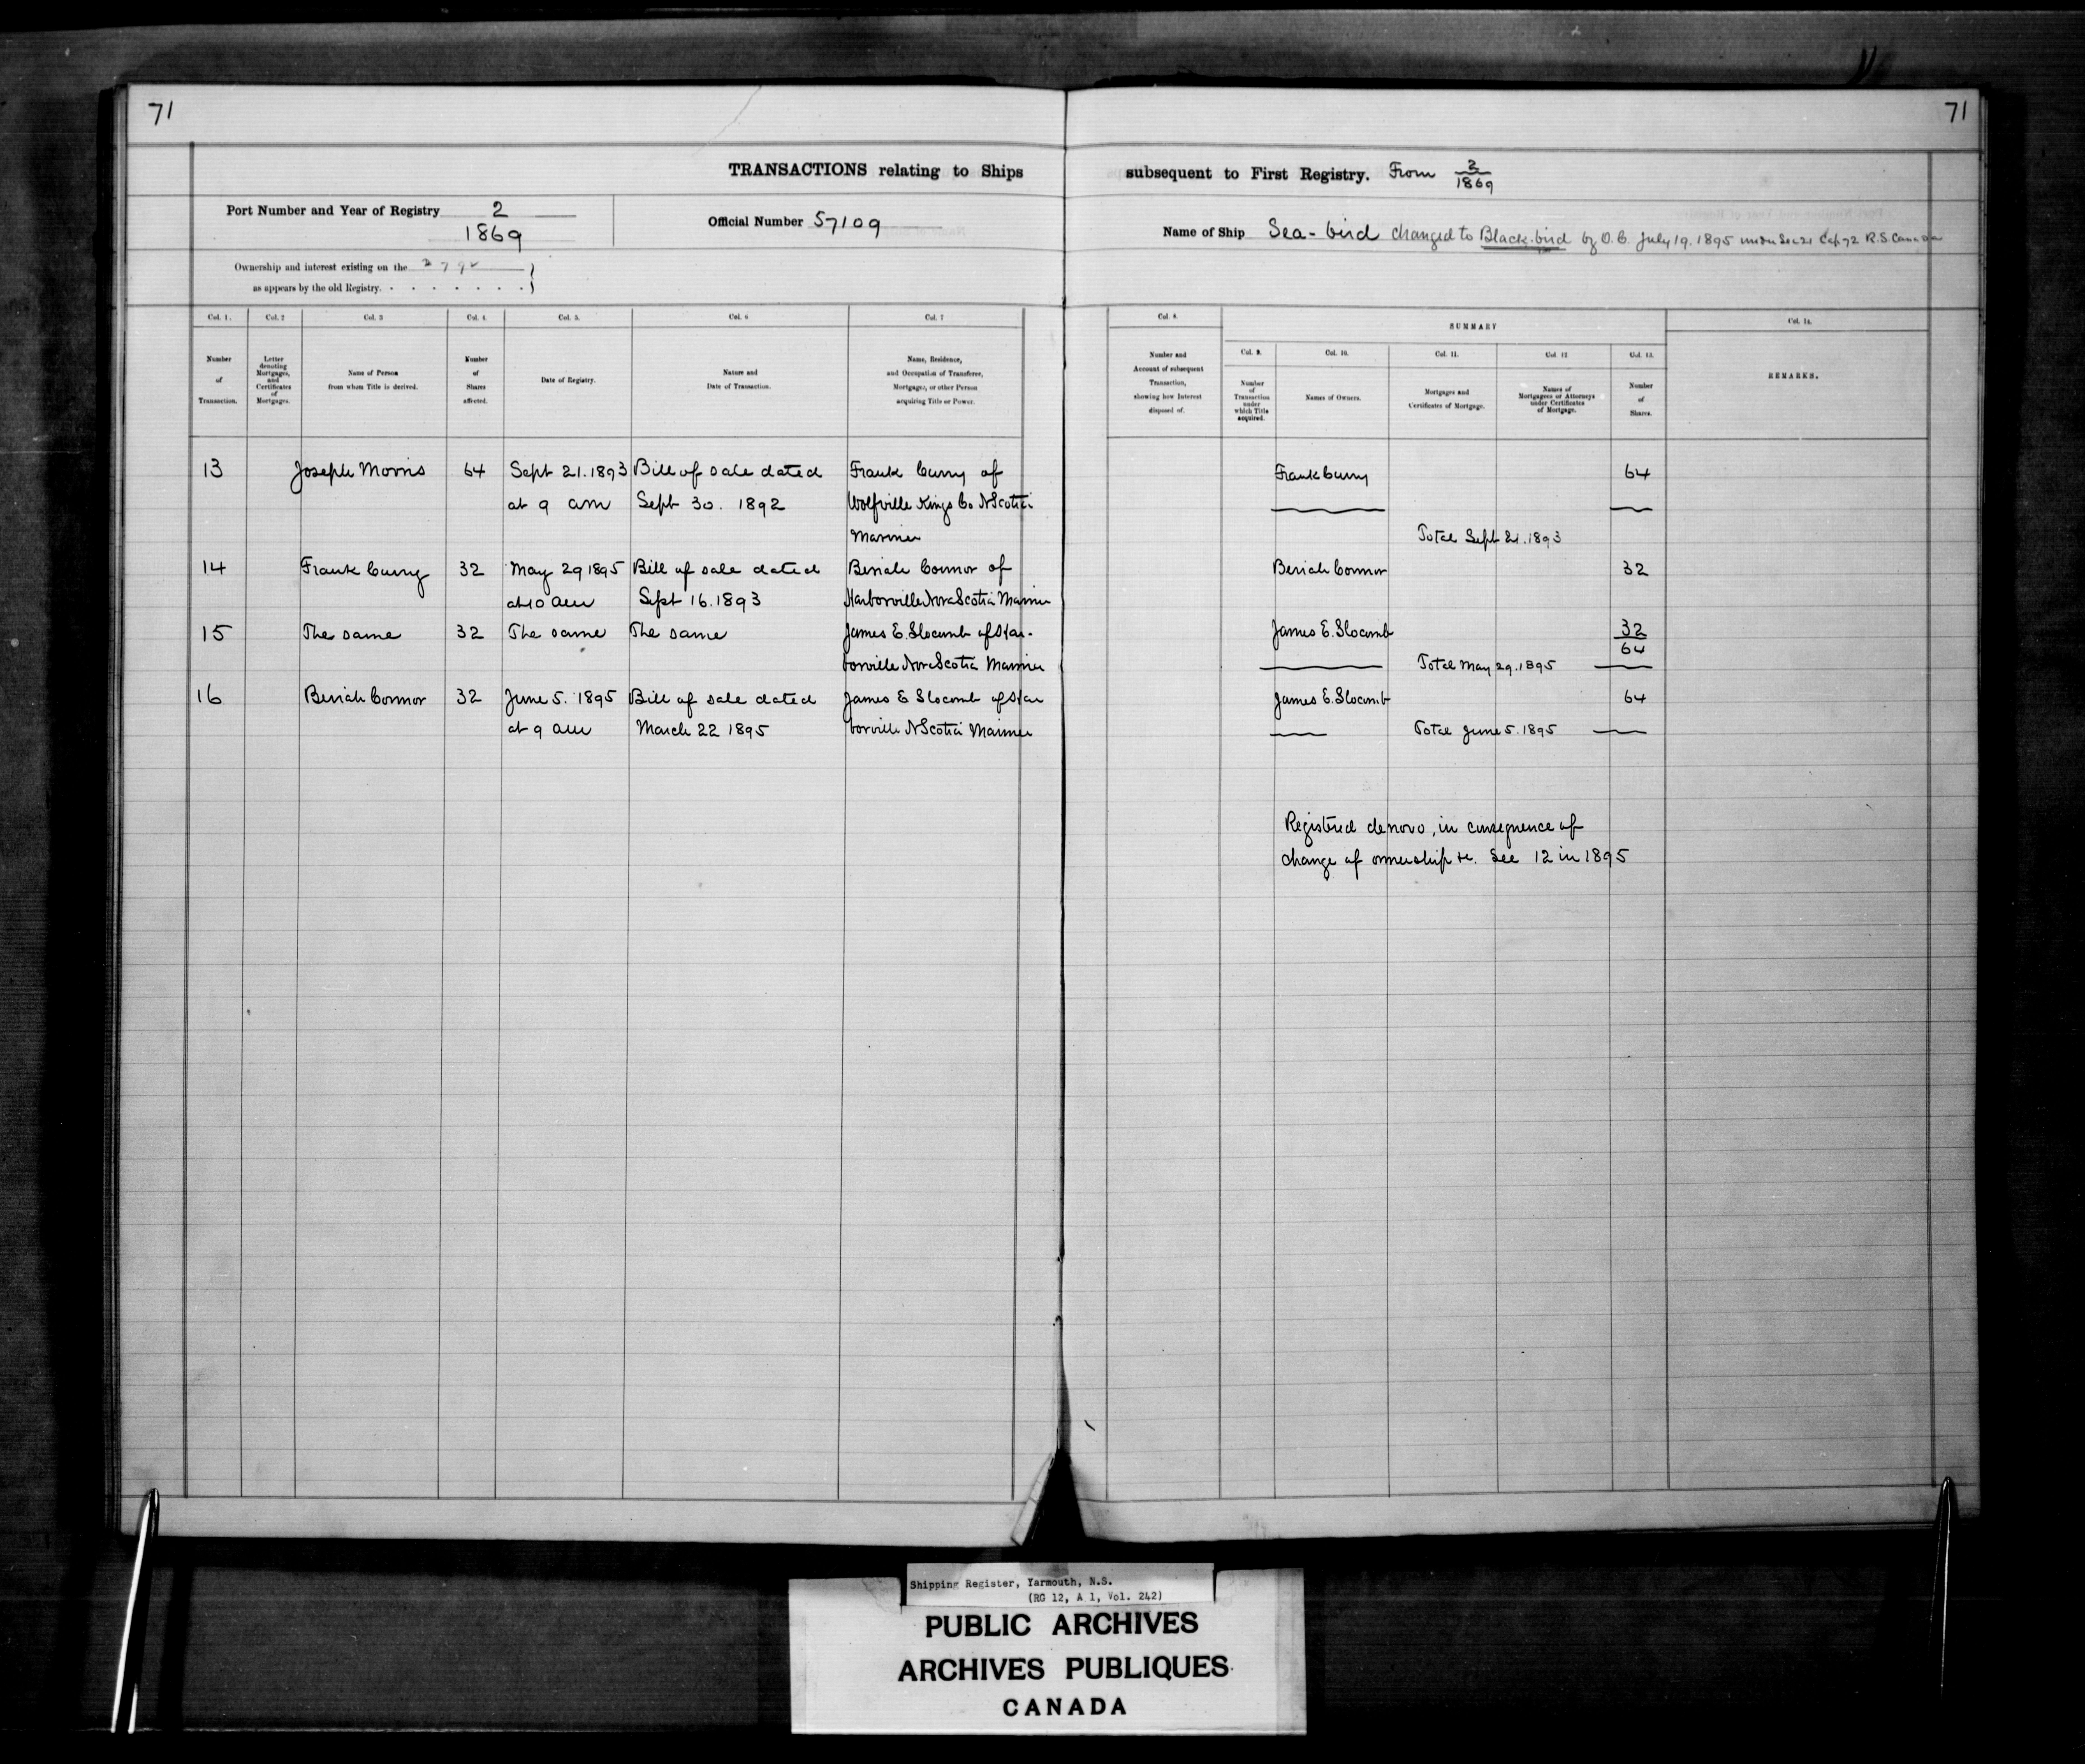 71
71
TRANSACTIONS relating to Ships subsequent to First Registry. From 2/1869
Port Number and Year of Registry 2
1869
Official Number 57109
Name of Ship Sea-bird changed to Black-bird by O.C. July 19. 1895 under Sec 21 Cap 72 R.S Canada
Ownership and interest existing on the
as appears by the old Registry.
Col. 1. Col. 2 Col. 3 Col. 4. Col. 5. Col. 6 Col. 7 Col. 8. SUMMARY Col. 14.
Col. 9. Col. 10. Col. 11. Col. 12 Col. 13.
Number of Transaction.
Letter denoting Mortgages, and Certificates of Mortgages.
Name of Person from whom Title is derived.
Number of Shares affected.
Date of Registry.
Nature and Date of Transaction.
Name, Residence, and Occupation of Transferee, Mortgagee, or other Person acquiring Title or Power.
Number and Account of subsequent Transaction, showing how Interest disposed of.
Number of Transaction under which Title acquired.
Names of Owners.
Mortgages and Certificates of Mortgage.
Names of Mortgagees or Attorneys under Certificates of Mortgage.
Number of Shares.
REMARKS.
13 Joseph Morris 64 Sept 21. 1893 Bill of sale dated Frank Curry of Frank Curry 64
at 9 am Sept 30. 1892 Wolfville Kings Co N Scotia
Mariner Total Sept 21. 1893
14 Frank Curry 32 May 29 1895 Bill of sale dated Beriah Connor of Beriah Connor 32
at 10 am Sept 16. 1893 Harborville Nova Scotia Mariner
15 The same 32 The same The same James E. Slocomb of Har- James E. Slocomb 32
64
borville Nova Scotia Mariner Total May 29. 1895
16 Beriah Connor 32 June 5. 1895 Bill of sale dated James E Slocomb of Har James E. Slocomb 64
at 9 am March 22 1895 borville N Scotia Mariner Total June 5. 1895
Registered de novo, in consequence of
change of ownership &c. See 12 in 1895
Shipping Register, Yarmouth, N.S.
(RG 12, A 1, Vol. 242)
PUBLIC ARCHIVES
ARCHIVES PUBLIQUES
CANADA